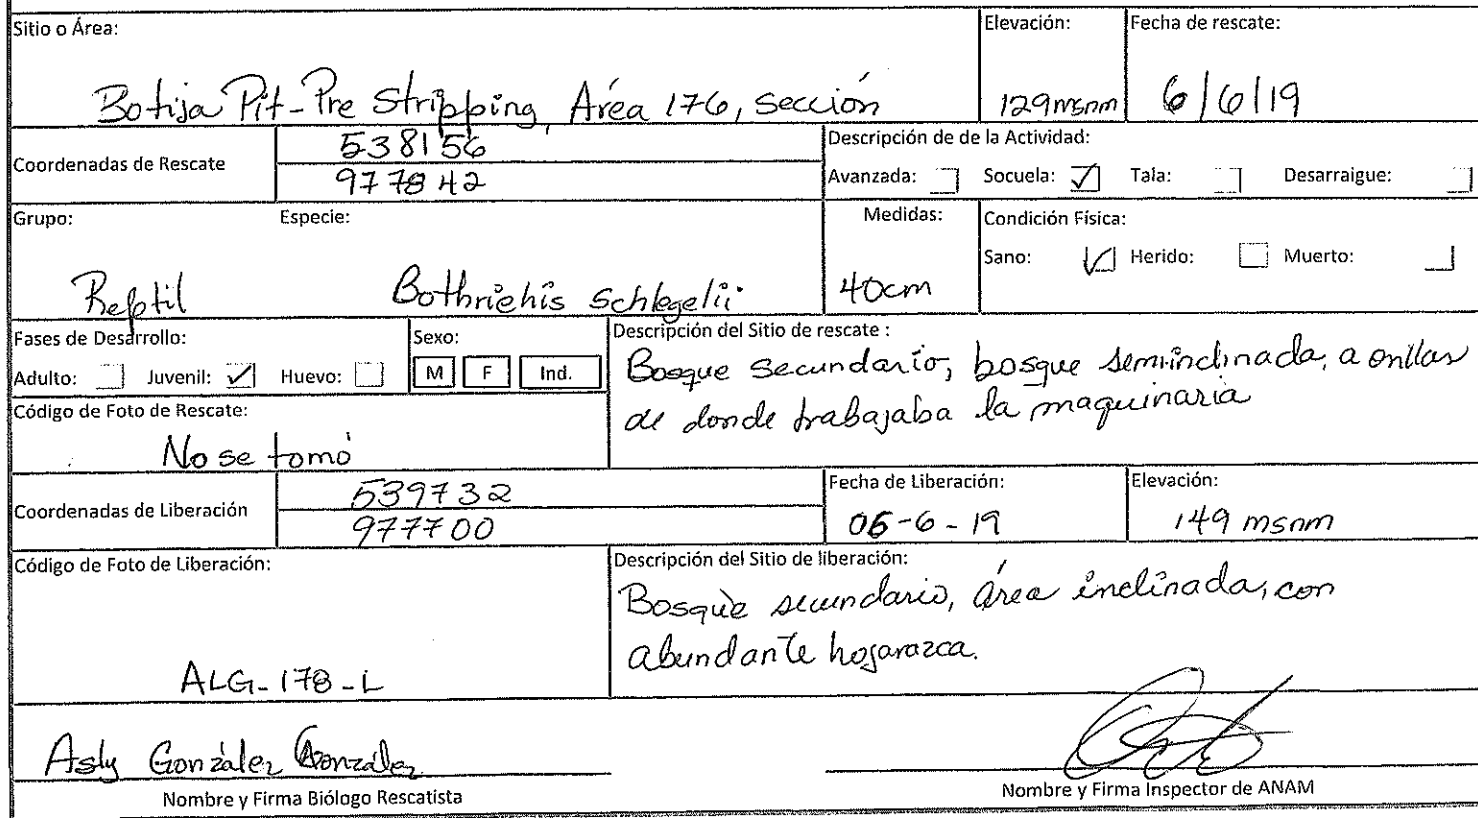 Sitio o Área:
Elevación:
Fecha de rescate:
Botija Pit-Pre Stripping, Área 176, sección
129msnm
6/6/19
Coordenadas de Rescate
538156
977842
Descripción de de la Actividad:
Avanzada: Socuela: ✓ Tala: Desarraigue:
Grupo:
Especie:
Medidas:
Condición Física:
Sano: ✓ Herido: Muerto:
Reptil
Bothriehis schlegelii
40cm
Fases de Desarrollo:
Adulto: Juvenil: ✓ Huevo:
Sexo:
M F Ind.
Descripción del Sitio de rescate :
Bosque secundario, bosque semiinclinada, a orillas
de donde trabajaba la maquinaria
Código de Foto de Rescate:
No se tomó
Coordenadas de Liberación
539732
977700
Fecha de Liberación:
06-6-19
Elevación:
149 msnm
Código de Foto de Liberación:
ALG-178-L
Descripción del Sitio de liberación:
Bosque secundario, área inclinada, con
abundante hojarazca.
Asly González González
Nombre y Firma Biólogo Rescatista
Nombre y Firma Inspector de ANAM